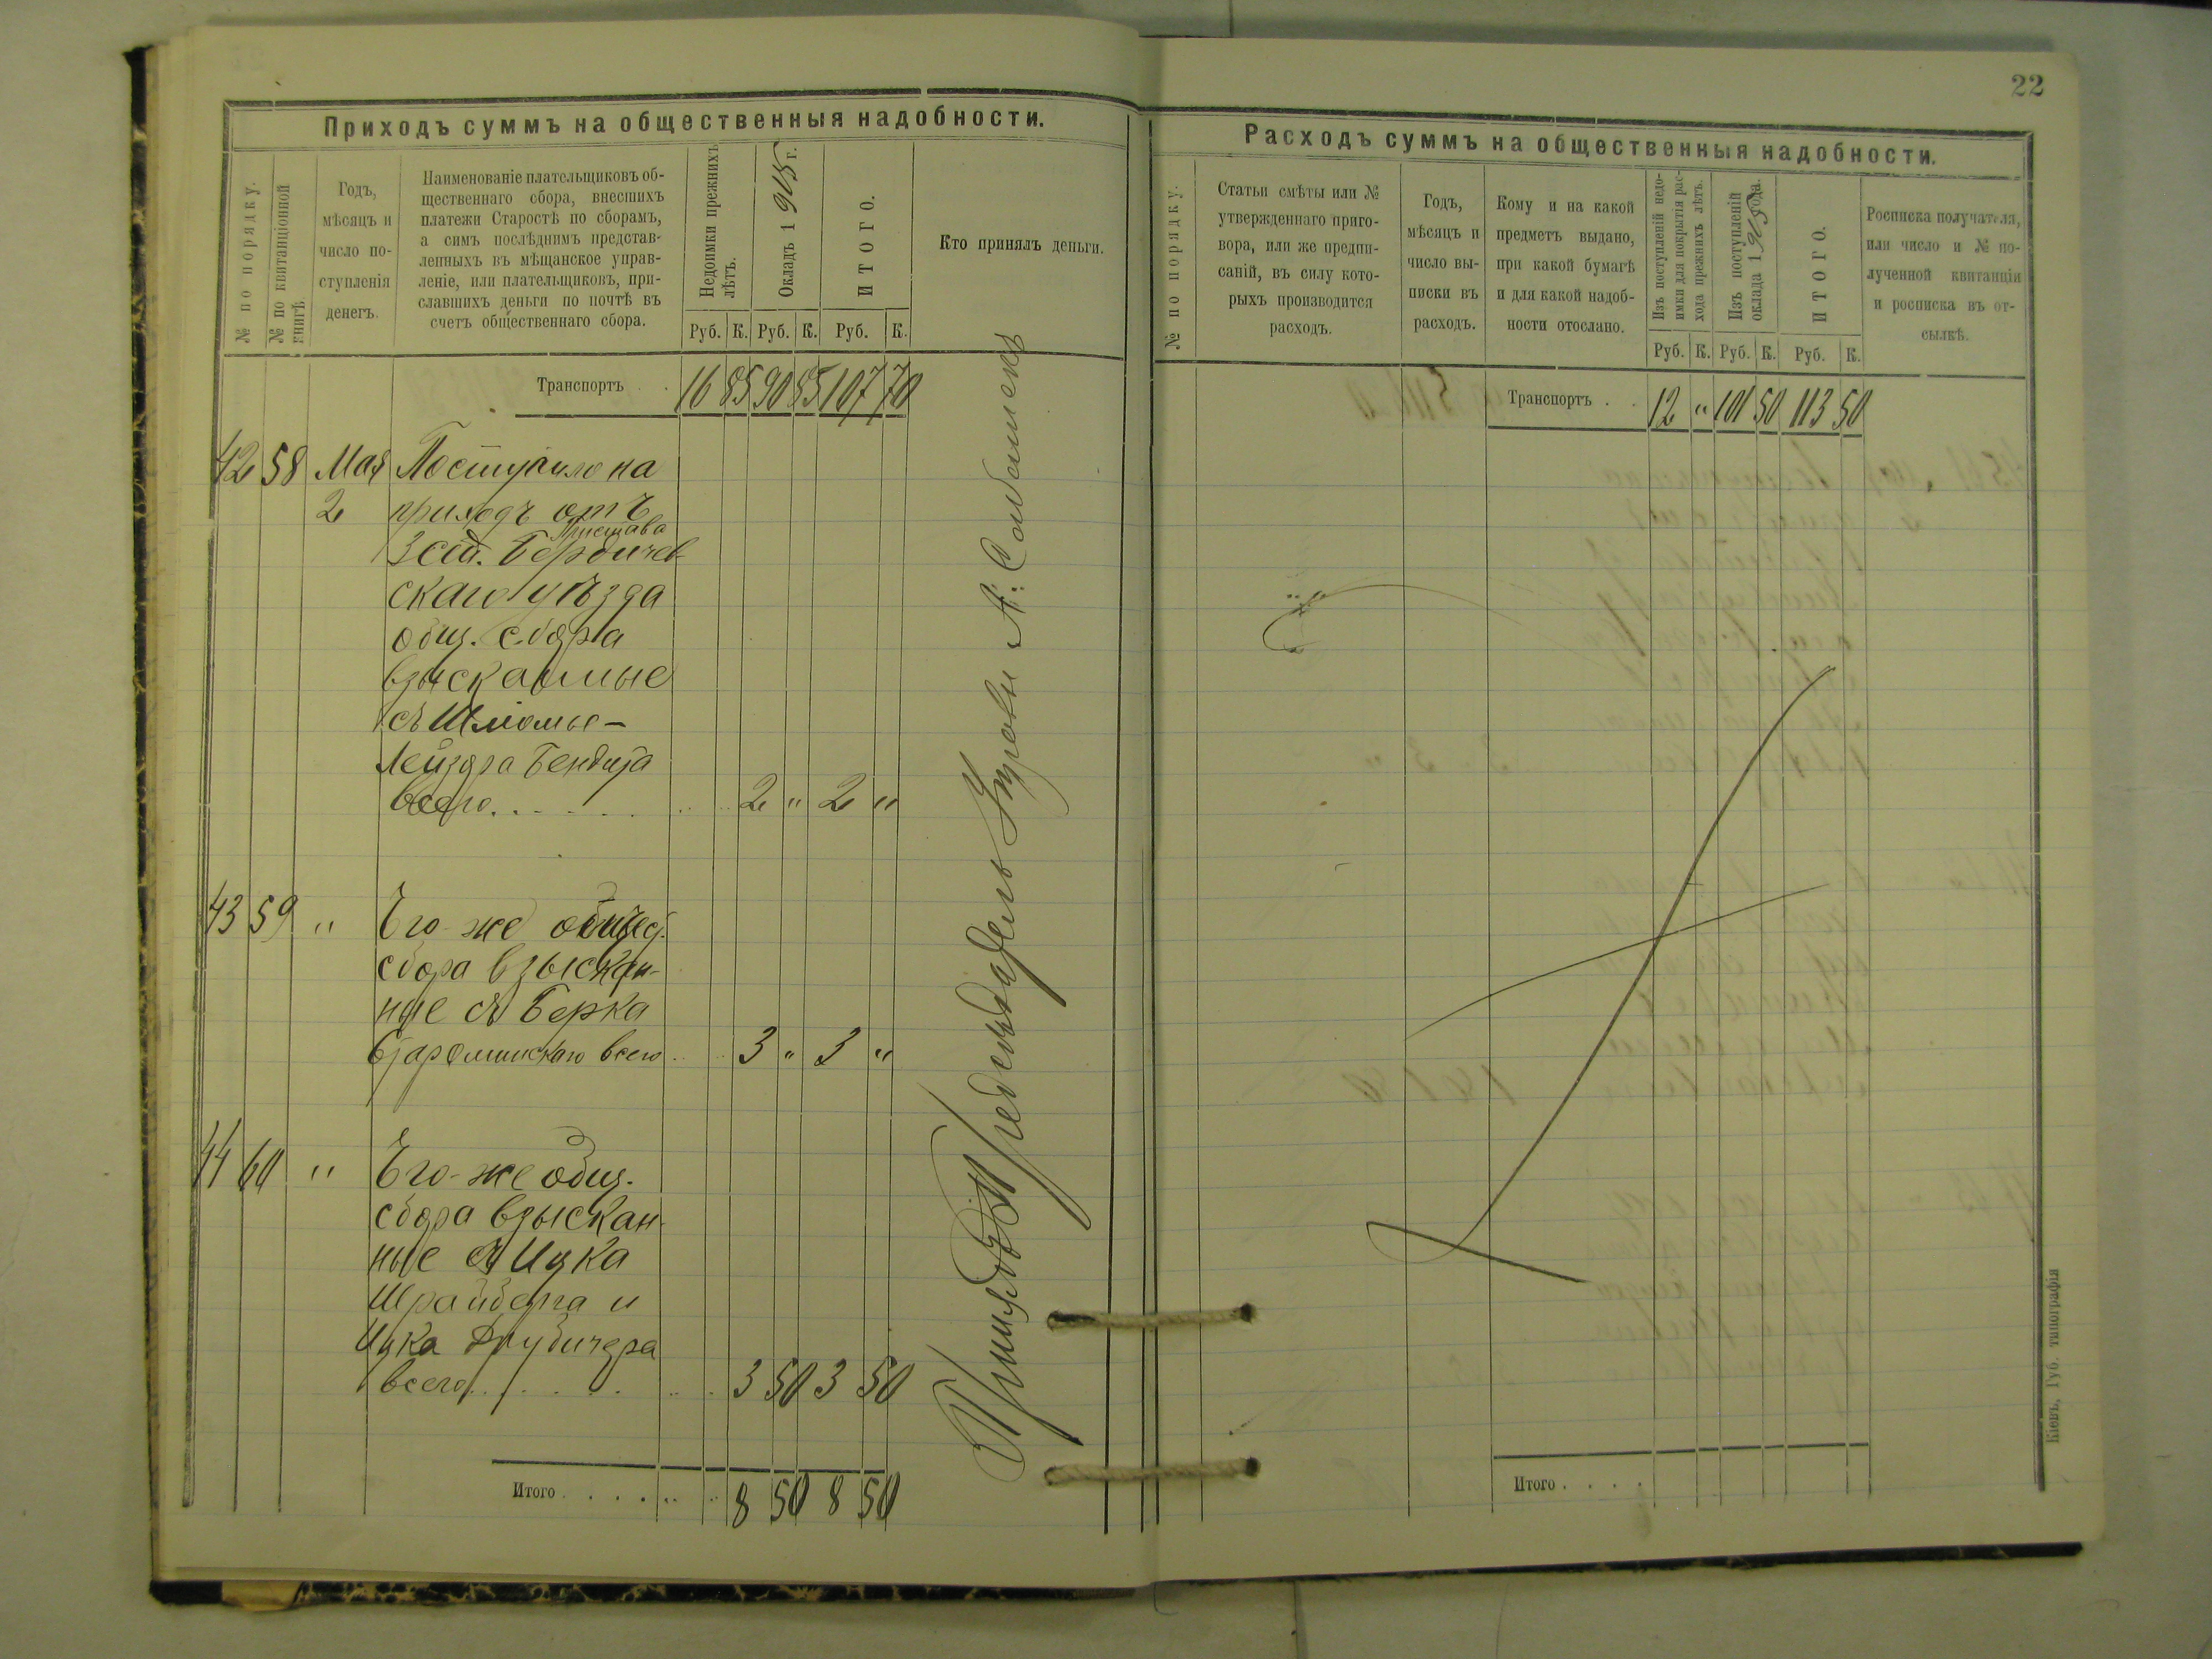 22
Приходъ суммъ на общественныя надобности.
№ по порядку.
№ по квитанціонной книгѣ.
Годъ,
мѣсяцъ и
число по-
ступленія
денегъ.
Наименованіе плательщиковъ об-
щественнаго сбора, внесшихъ
платежи Старостѣ по сборамъ,
а симъ послѣднимъ представ-
ленныхъ въ мѣщанское управ-
леніе, или плательщиковъ, при-
славшихъ деньги по почтѣ въ
счетъ общественнаго сбора.
Недоимки прежнихъ
лѣтъ.
Окладъ 1905 г.
ИТОГО.
Руб. К. Руб. К. Руб. К.
Кто принялъ деньги.
Транспортъ . . 16 85 90 85 107 70
42 58 Мая Поступило на
2 приходъ отъ
Пристава
3 ст. Бердичев
скаго уѣзда
общ. сбора
взысканные
съ Шломы-
Лейзора Бендита
всего. . . . . 2 " 2 "
43 59 " Его-же общес.
сбора взыскан-
ные съ Берка
всего . . 3 " 3 "
44 60 " Его-же общ.
сбора взыскан-
ные съ Ицка
Шрайберга и
Ицка
всего . . . . . 3 50 3 50
Итого . . . . 8 50 8 50
Принялъ Предсѣдатель Управы А.
Расходъ суммъ на общественныя надобности.
№ по порядку.
Статьи смѣты или №
утвержденнаго приго-
вора, или же предпи-
саній, въ силу кото-
рыхъ производится
расходъ.
Годъ,
мѣсяцъ и
число вы-
писки въ
расходъ.
Кому и на какой
предметъ выдано,
при какой бумагѣ
и для какой надоб-
ности отослано.
Изъ поступленій недо-
имки для покрытія рас-
хода прежнихъ лѣтъ.
Изъ поступленій
оклада 1905 года.
ИТОГО.
Руб. К. Руб. К. Руб. К.
Росписка получателя,
или число и № по-
лученной квитанціи
и росписка въ от-
сылкѣ.
Транспортъ . . 12 " 101 50 113 50
Итого . . . .
Кіевъ, Губ. типографія